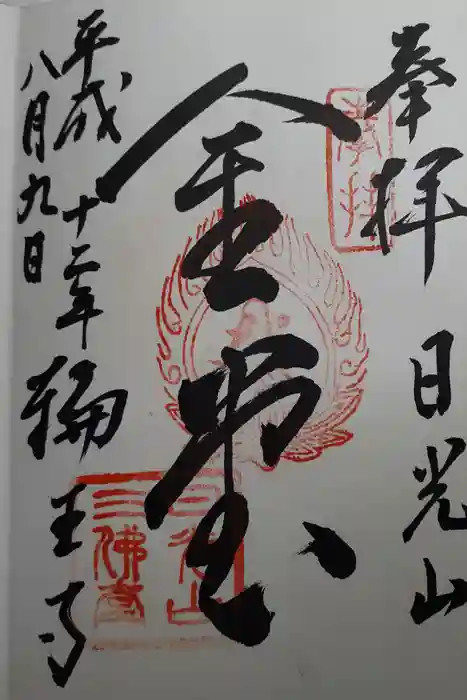 奉拝 日光山
奉拝
金堂
日光山
三佛堂
平成十二年 輪王寺
八月九日